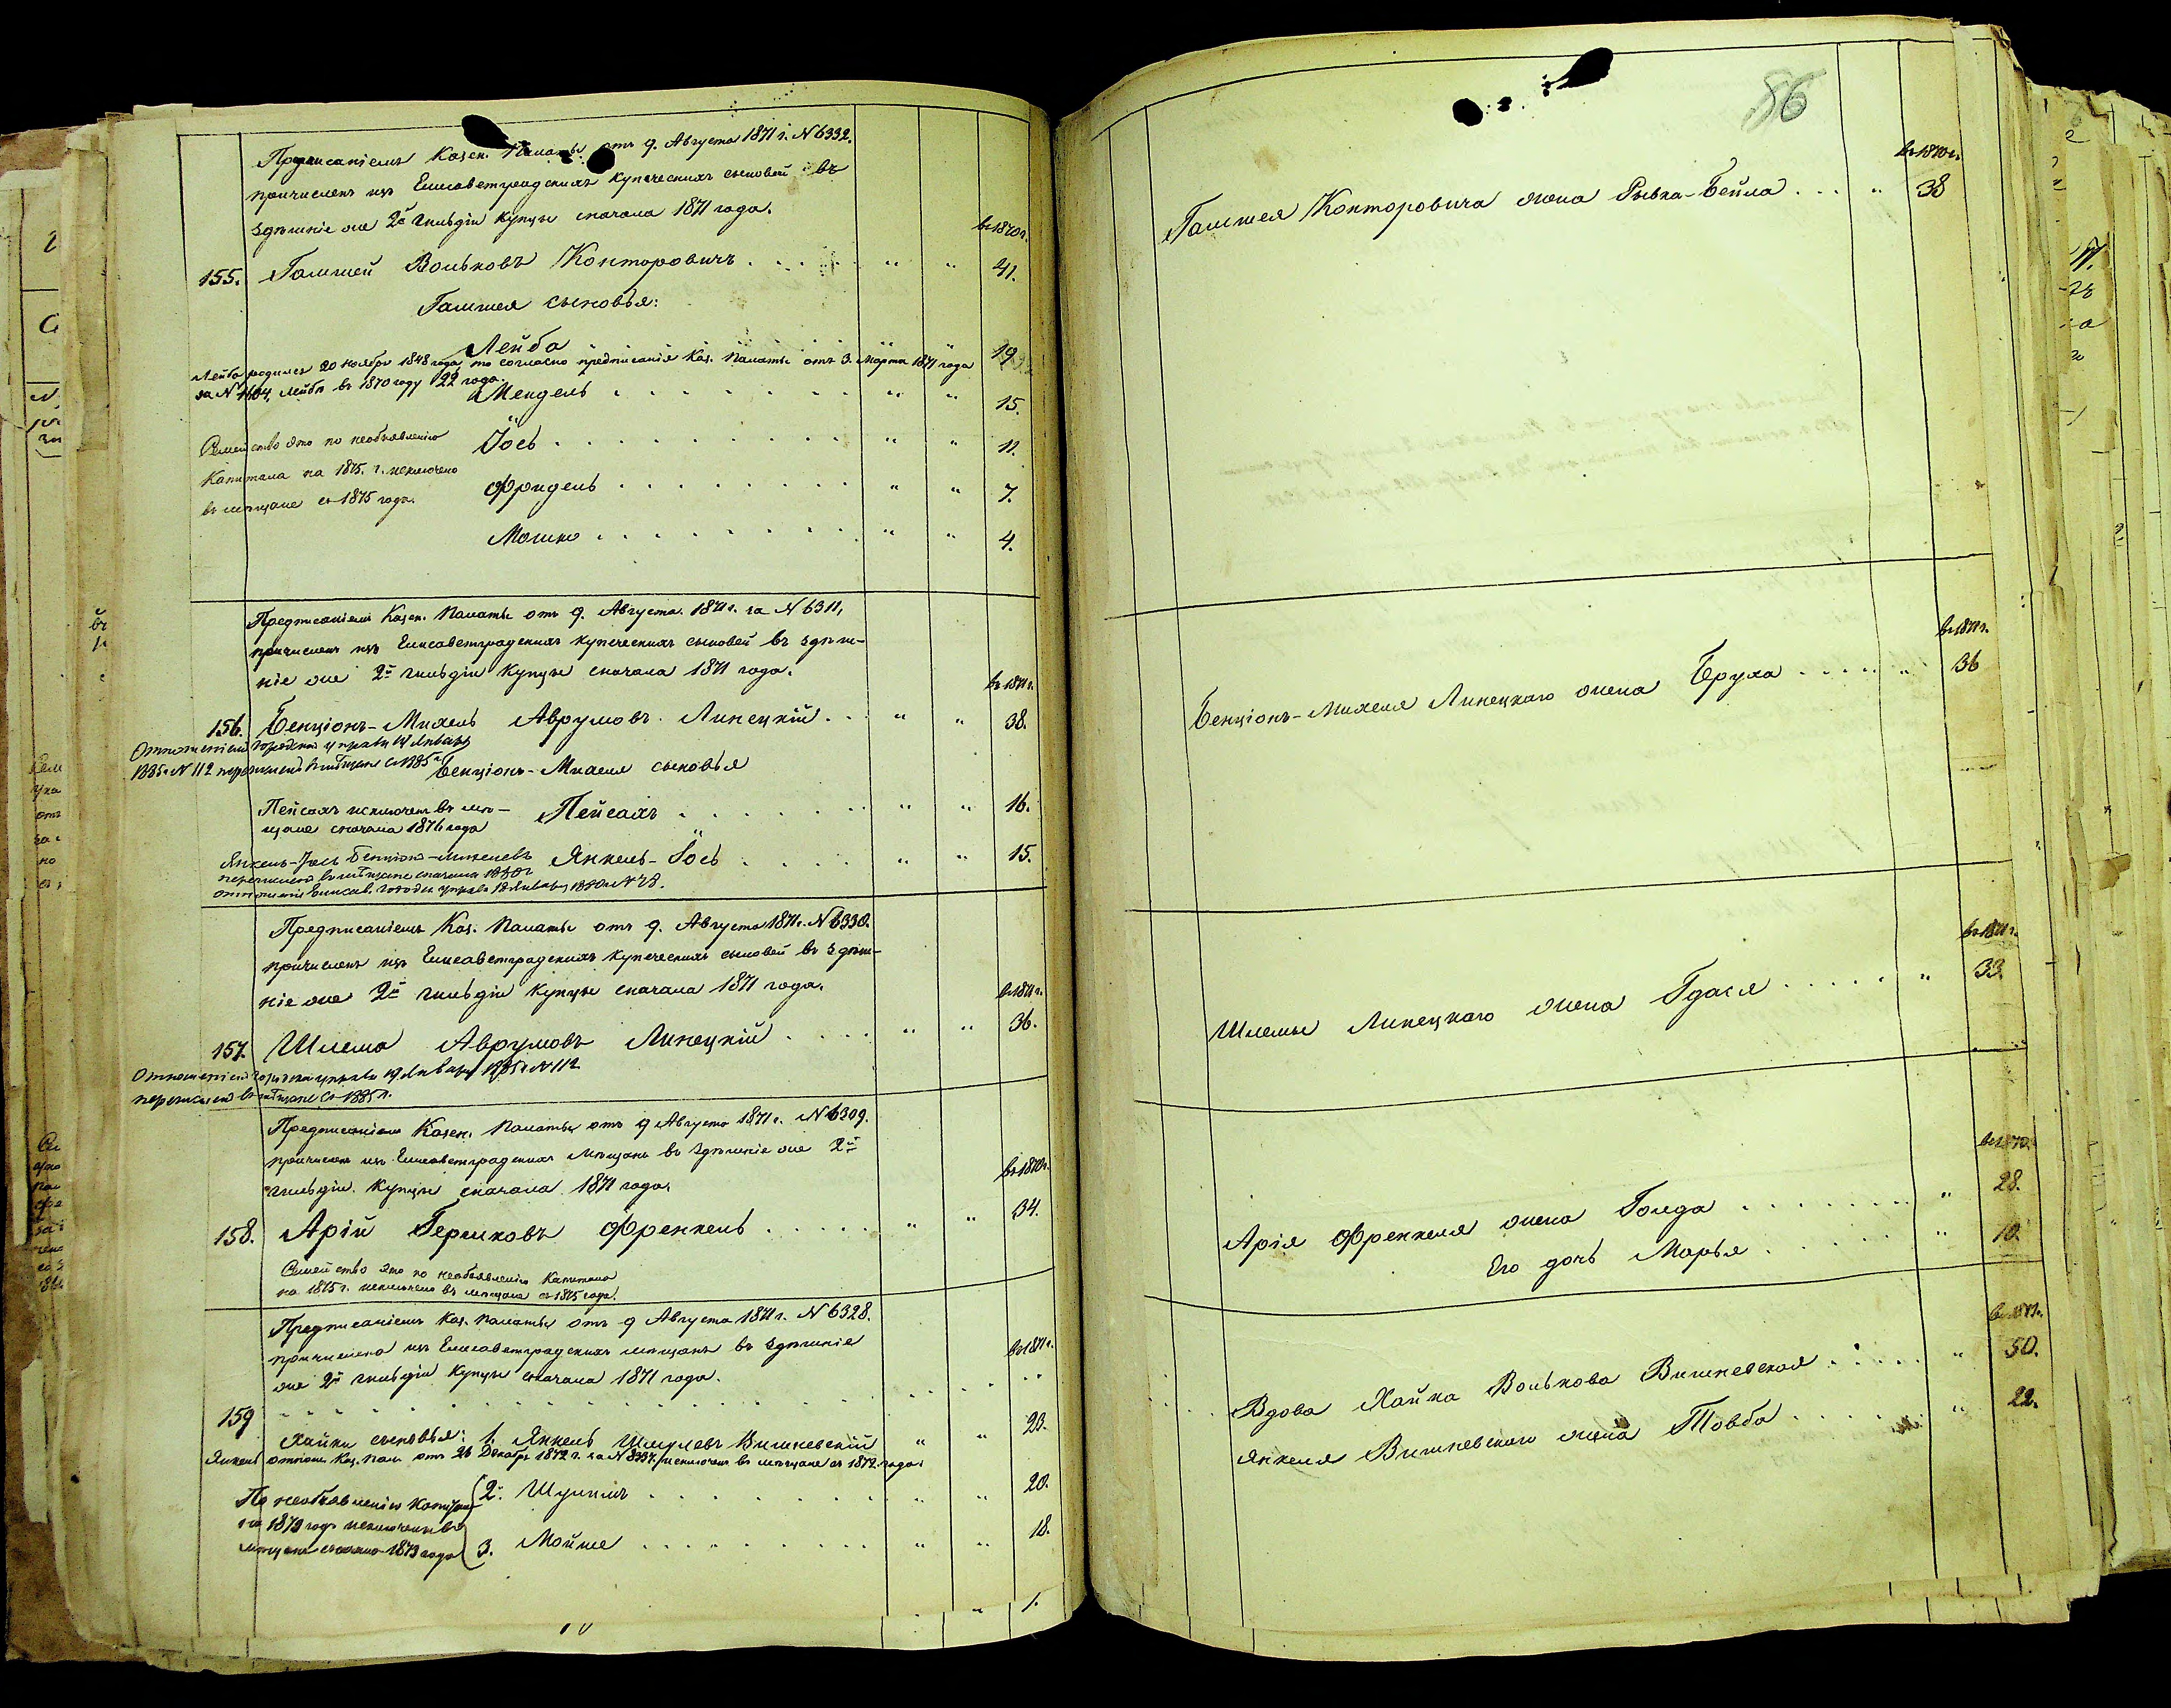 Предписаніемъ Казен. Палаты отъ 9. Августа 1871 г. N 6332.
причисленъ изъ Елисаветградскихъ купеческихъ сыновей въ
здѣшніе же 2й гильдіи купцы сначала 1871 года.
въ 1870 г.
155. Гамшей Вольковъ Конторовичъ . . . . . " " 41.
Гамшея сыновья:
Лейба " " 19
Лейба родился 20 ноября 1848 года, то согласно предписанія Каз. Палаты отъ 3. Марта 1871 года
за N 1604, Лейбѣ въ 1870 году 22 года.
Мендель . . . . . . . " " 15.
Іось . . . . . . . . " " 11.
Семейство это по необъявленію
Капитала на 1875. г. исключено
въ мѣщане съ 1875 года.
Фридель . . . . . . . " " 7.
Мошко . . . . . . . . " " 4.
Предписаніемъ Казен. Палаты отъ 9. Августа 1871 г. за N 6311,
причисленъ изъ Елисаветградскихъ купеческихъ сыновей въ здѣш-
ніе же 2й гильдіи купцы сначала 1871 года.
въ 1871 г.
156. Бенціонъ-Михель Аврумовъ Липецкій . . . " " 38.
Отношеніемъ городской управы 19 Января
1885 г. N 112 перечисленъ въ мѣщане съ 1885 г.
Бенціонъ-Михеля сыновья
Пейсахъ исключенъ въ мѣ-
щане сначала 1876 года
Пейсахъ . . . . . . " " 16.
Янкель-Іось Бенціонъ-Михелевъ
перечисленъ въ мѣщане сначала 1880 г
отношеніе Елисав. городск. управы 12 Января 1880 г. N 78.
Янкель-Іось . . . . . " " 15.
Предписаніемъ Каз. Палаты отъ 9. Августа 1871 г. N 6330.
причисленъ изъ Елисаветградскихъ купеческихъ сыновей въ здѣш-
ніе же 2й гильдіи купцы сначала 1871 года.
въ 1871 г.
157. Шлема Аврумовъ Липецкій . . . . " " 36.
Отношеніемъ городской управы 19 Января 1885 г. N 112
перечисленъ въ мѣщане съ 1885 г.
Предписаніемъ Казен. Палаты отъ 9 Августа 1871 г. N 6309.
причисленъ изъ Елисаветградскихъ мѣщанъ въ здѣшніе же 2й
гильдіи купцы сначала 1871 года.
въ 1870 г.
158. Арій Гершковъ Френкель . . . . . " " 34.
Семейство это по необъявленію Капитала
на 1875 г. исключено въ мѣщане съ 1875 года.
Предписаніемъ Каз. Палаты отъ 9 Августа 1871 г. N 6328.
причислена изъ Елисаветградскихъ мѣщанъ въ здѣшніе
же 2й гильдіи купцы сначала 1871 года.
въ 1871 г.
159
Хайки сыновья: 1. Янкель Шмулевъ Вишневскій " " 23.
Янкель отношен. Каз. Пал. отъ 26 Декабря 1872 г. за N 8397. исключенъ въ мѣщане съ 1872. года.
По необъявленію Капитала
на 1873 годъ исключены въ
мѣщане сначала 1873 года
2. Шулимъ . . . . . . . " " 20.
3. Мойше . . . . . . . . " " 18.
" 1.
86
въ 1870 г.
Гамшея Конторовича жена Рывка-Бейла . . . " 38
въ 1871 г.
Бенціонъ-Михеля Липецкаго жена Бруха . . . . . " 36
въ 1871 г.
Шлемы Липецкаго жена Гдася . . . . . " 33.
въ 1870.
Арія Френкеля жена Голда . . . . . . . . " 28.
Его дочь Марья . . . . . . " 10.
въ 1871.
Вдова Хайка Волькова Вишневская . . . . . " 50.
Янкеля Вишневскаго жена Товба . . . . . " 22.